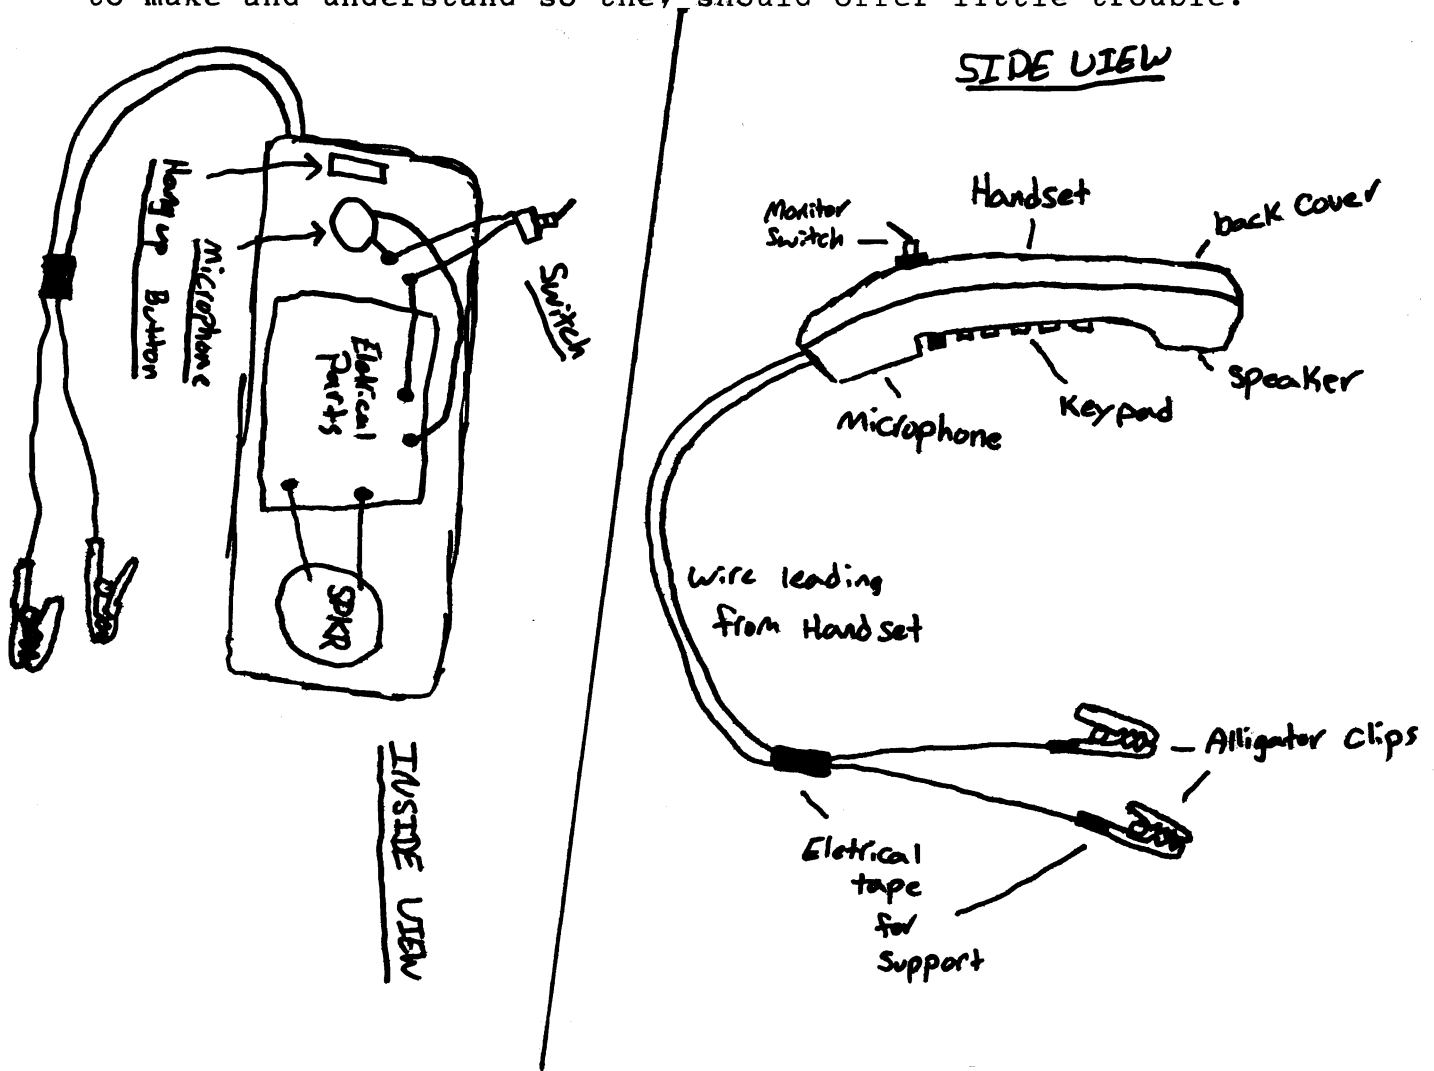 to make and understand so they should offer little trouble.
Hang up Button
Microphone
Switch
Eletrical
Parts
SPKR
INSIDE VIEW
SIDE VIEW
Monitor
Switch
Handset
back Cover
Speaker
Keypad
Microphone
wire leading
from Handset
Alligator Clips
Eletrical
tape
for
Support